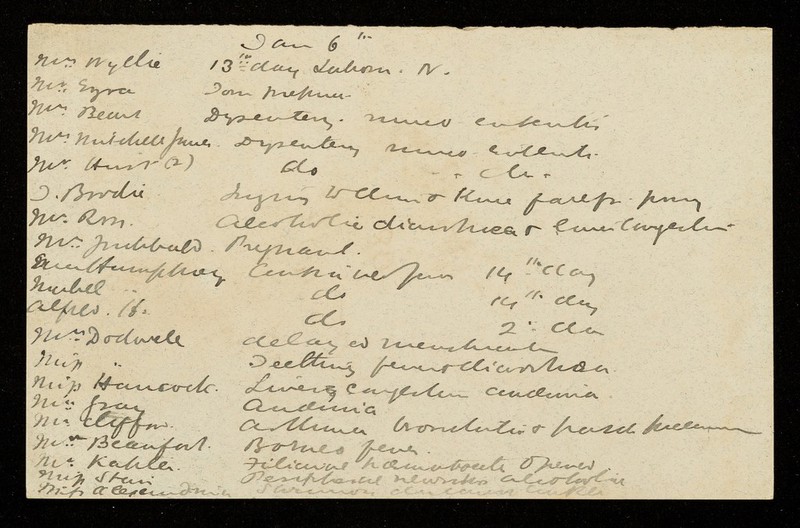 Jan 6th
Mrs Wyllie 13th day Labour. N.
Mr. Ezra Torn
Mrs Beart Dysentery. muco enteritis
Mrs Mitchell Innes. Dysentery muco enteritis
Mr. Hurst (2) do do
J. Brodie Injury to Elbow & Knee
Mr. Ross. Alcoholic diarrhoea & Liver Congestion
Mrs. Pregnant.
Humphrey Continued fever 14th day
Mabel " do 14th day
Alfred H. do 2nd day
Mrs Dodwell delayed menstruation
Miss " Teething fever diarrhoea
Miss Hancock. Liver Congestion anaemia
Mrs Gray Anaemia
Mr Clifton. Asthma bronchitis &
Mrs Beaufort. Borneo fever
Mr Kahler. Filiarial haematocele opened
Miss Stain Peripheral neuritis alcoholic
Miss